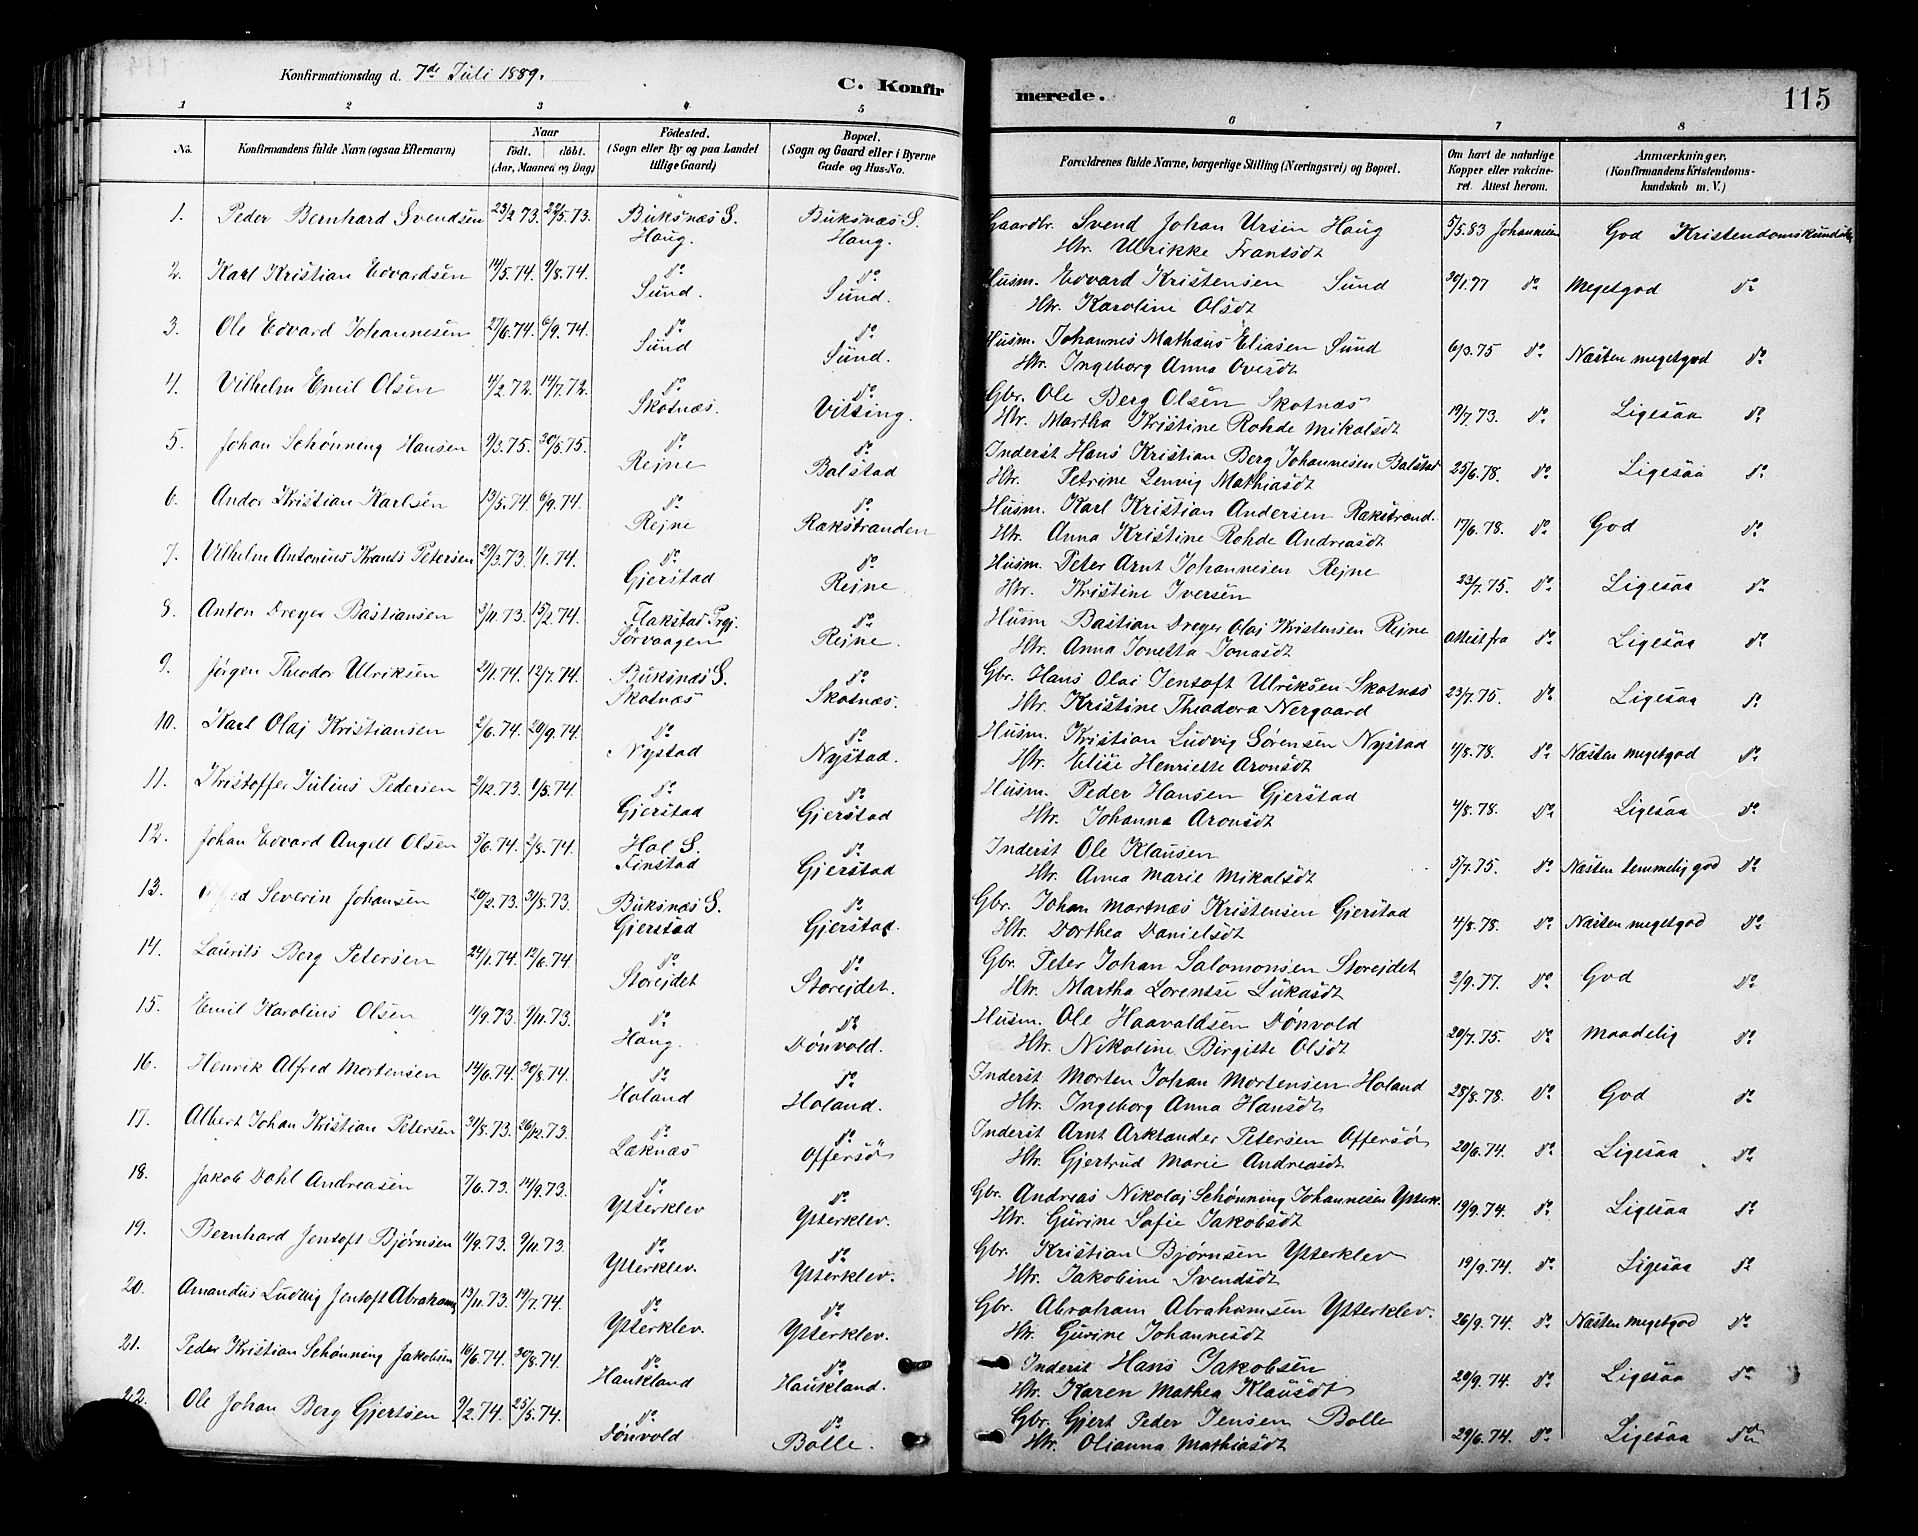 Konfirmationsdag d. 7de Juli 1889.
C. Konfirmerede.
115
1 2 3 4 5 6 7 8
No.
Konfirmandens fulde Navn (ogsaa Efternavn)
Naar
födt. döbt.
(Aar, Maaned og Dag)
Födested.
(Sogn eller By og paa Landet
tillige Gaard)
Bopæl.
(Sogn og Gaard eller i Byerne
Gade og Hus-No.
Forældrenes fulde Navne, borgerlige Stilling (Næringsvei) og Bopæl.
Om havt de naturlige
Kopper eller vakcine-
ret. Attest herom.
Anmærkninger.
(Konfirmandens Kristendoms-
kundskab m. V.)
1. Peder Bernhard Svendsen 23/2 73. 22/5.73. Buksnæs S. Buksnæs S. Gaardbr. Svend Johan Ursin Haug 5/5.83 God
Haug. Haug. Htr. Ulrikke Frantsdt
2. Karl Kristian Edvardsen 14/5.74. 9/8.74. do do Husm. Edvard Kristensen Sund 30/1.77 do Megetgod do
Sund. Sund. Htr. Karoline Olsdt
3. Ole Edvard Johannesen 27/6.74. 6/9.74. do do Husm. Johannes Mathæus Eliasen Sund 6/3.75 do Næsten megetgod do
Sund Sund. Htr. Ingeborg Anna Ovesdt
4. Vilhelm Emil Olsen 4/2.72. 14/7.72. do do Gbr. Ole Berg Olsen Skotnæs 19/7.73. do Ligesaa do
Skotnæs. Vitsing. Htr. Martha Kristine Rohde Mikalsdt
5. Johan Schönning Hansen 9/3.75. 30/5.75. do do Inderst Hans Kristian Berg Johannesen Balstad 25/6.78. do Ligesaa do
Rejne Balstad Htr. Petrine Mathiasdt
6. Andor Kristian Karlsen 13/5.74. 6/9.74. do do Husm. Karl Kristian Andersen Rakstrand. 17/6.78. do God do
Rejne Rakstranden Htr. Anna Kristine Rohde Andreasdt
7. Vilhelm Antonius Krants Petersen 29/3.73. 1/1.74. do do Husm. Peter Arnt Johannesen Rejne 23/7.75. do Ligesaa do
Gjerstad Rejne. Htr. Kristine Iversen
8. Anton Dreyer Bastiansen 3/11.73. 15/2.74. Flakstad Prgj. do Husm Bastian Dreyer Olaj Kristensen Rejne Attest fra do Ligesaa do
Sörvaagen Rejne. Htr. Anna Jonetta Jonasdt
9. Jörgen Theodor Ulriksen 21/1.74. 12/7.74. Buksnæs S. do Gbr. Hans Olai Jentoft Ulriksen Skotnæs 23/7.75. do Ligesaa do
Skotnæs Skotnæs. Htr. Kristine Theodora Nergaard
10. Karl Olaj Kristiansen 2/6.74. 20/9.74. do do Husm. Kristian Ludvig Sörensen Nystad 4/8.78. do Næsten megetgod do
Nystad Nystad. Htr. Elise Henriette Aronsdt
11. Kristoffer Julius Pedersen 2/12.73. 1/5.74. do do Husm. Peder Hansen Gjerstad 4/8.78. do Ligesaa do
Gjerstad Gjerstad Htr. Johanna Aronsdt
12. Johan Edvard Angell Olsen 5/6.74. 2/8.74. Hol S. do Inderst Ole Klausen 5/7.75. do Næsten temmelig god do
Finstad Gjerstad Htr. Anna Marie Mikalsdt
13. Severin Johansen 20/2.73. 31/8.73. Buksnæs S. do Gbr. Johan Martnæs Kristensen Gjerstad 4/8.78. do Næsten megetgod do
Gjerstad Gjerstad. Htr. Dorthea Danielsdt
14. Laurits Berg Petersen 24/1.74. 12/6.74. do do Gbr. Peter Johan Salomonsen Storejdet 2/9.77. do God do
Storejdet Storejdet. Htr. Martha Lorentse Lukasdt
15. Emil Karolius Olsen 11/9.73. 9/11.73. do do Husm. Ole Haavaldsen Dönvold 20/7.75. do Maadelig do
Haug. Dönvold. Htr. Nikoline Birgitte Olsdt
16. Henrik Alfred Mortensen 14/6.74. 30/8.74. do do Inderst Morten Johan Mortensen Holand 28/8.78. do God do
Holand Holand. Htr. Ingeborg Anna Hansdt
17. Albert Johan Kristian Petersen 31/8.73. 26/12.73. do do Inderst Arnt Arktander Petersen Offersö 20/6.74. do Ligesaa do
Læknæs Offersö Htr. Gjertrud Marie Andreasdt
18. Jakob Dahl Andreasen 7/6.73. 14/9.73. do do Gbr. Andreas Nikolaj Schönning Johannesen Ytterk. 19/9.74. do Ligesaa do
Ytterklev Ytterklev. Htr. Gurine Sofie Jakobsdt
19. Bernhard Jentoft Björnsen 11/9.73. 9/11.73. do do Gbr. Kristian Björnsen Ytterklev 19/9.74. do Ligesaa do
Ytterklev. Ytterklev. Htr. Jakobine Svendsdt
20. Amandus Ludvig Jentoft Abrahams 13/11.73. 19/7.74. do do Gbr. Abraham Abrahamsen Ytterklev. 26/9.74. do Næsten megetgod do
Ytterklev. Ytterklev. Htr. Gurine Johannesdt
21. Peder Kristian Schönning Jakobsen 16/6.74. 30/8.74. do do Inderst Hans Jakobsen 20/9.74. do Ligesaa do
Haukland Haukland. Htr. Karen Mathea Klausdt
22. Ole Johan Berg Gjertsen 9/2.74. 25/5.74. do do Gbr. Gjert Peder Jensen Bolle 29/6.74. do Ligesaa do
Dönvold Bolle. Htr. Olianna Mathiasdt